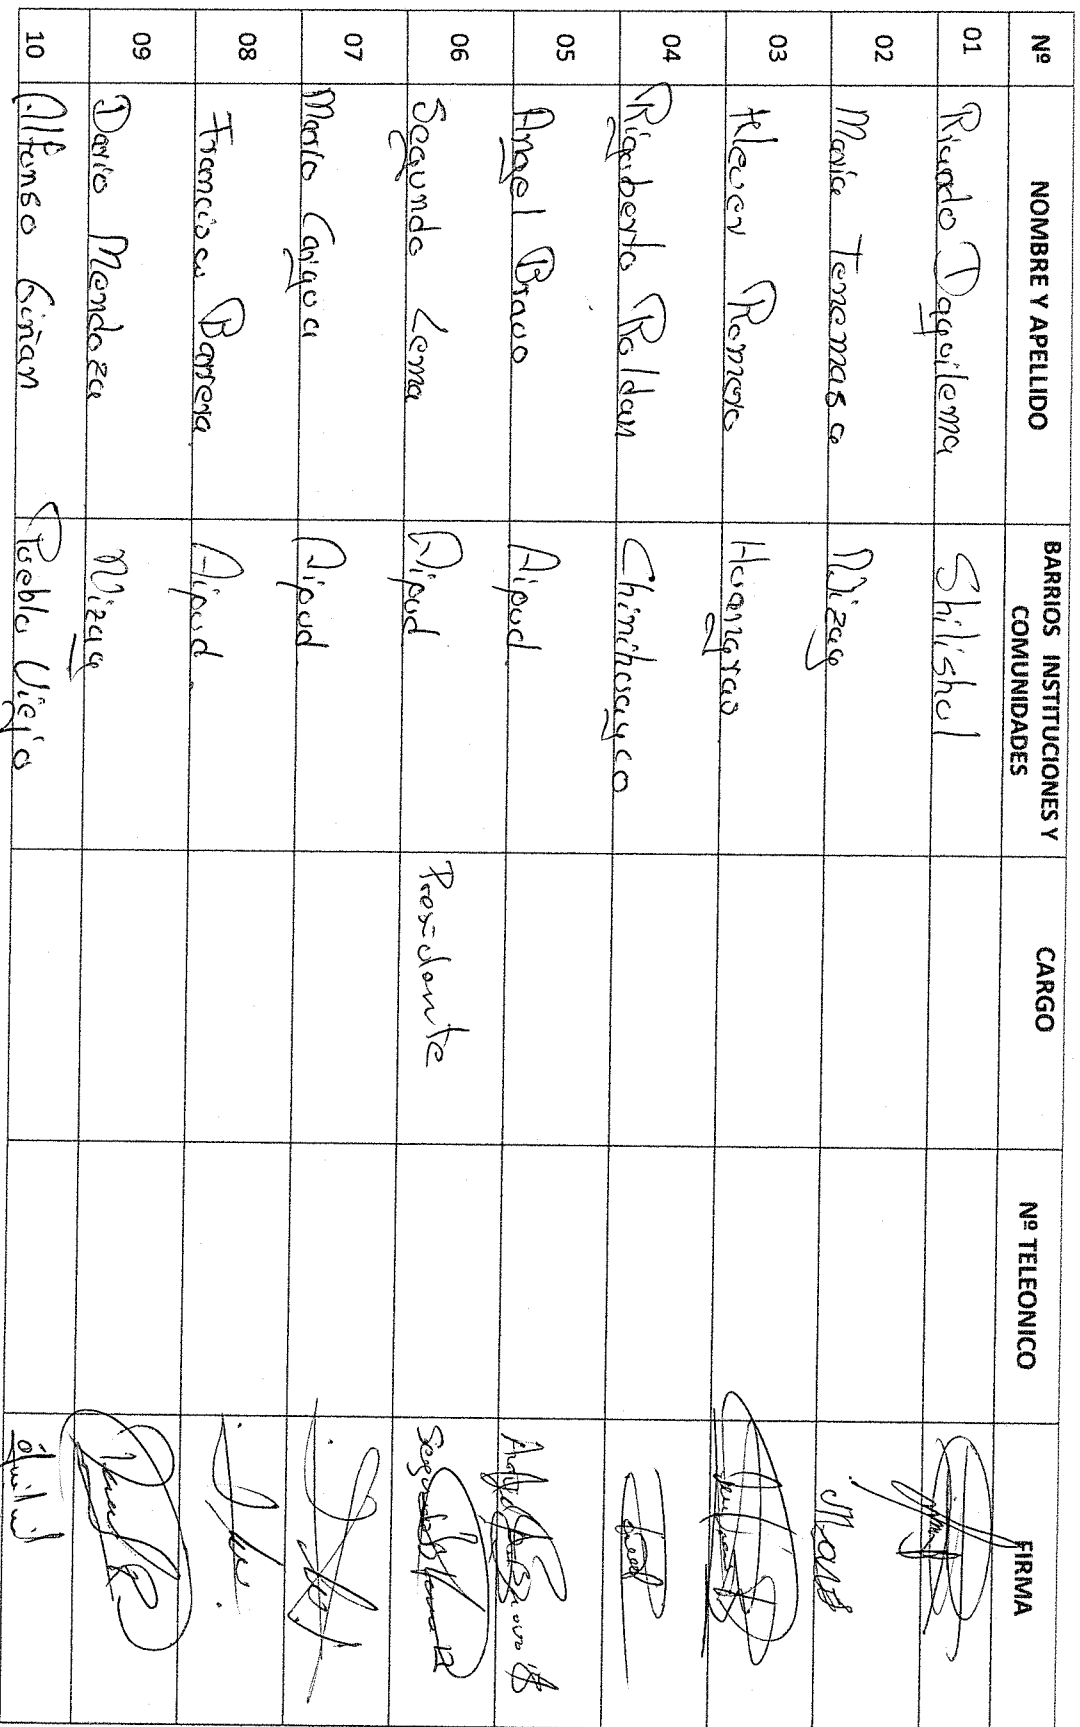 Nº NOMBRE Y APELLIDO BARRIOS INSTITUCIONES Y COMUNIDADES CARGO Nº TELEONICO FIRMA
01 Ricardo Daquilema Shilishul
02 Maria Tenemasa Nizag
03 Klever Romero
04 Rigoberto Roldan Chinihuayco
05 Angel Bravo Aipud
06 Segundo Lema Aipud Presidente
07 Mario Aipud
08 Francisco Barrera Aipud
09 Dario Mendoza Nizag
10 Alfonso Guñan Pueblo Viejo